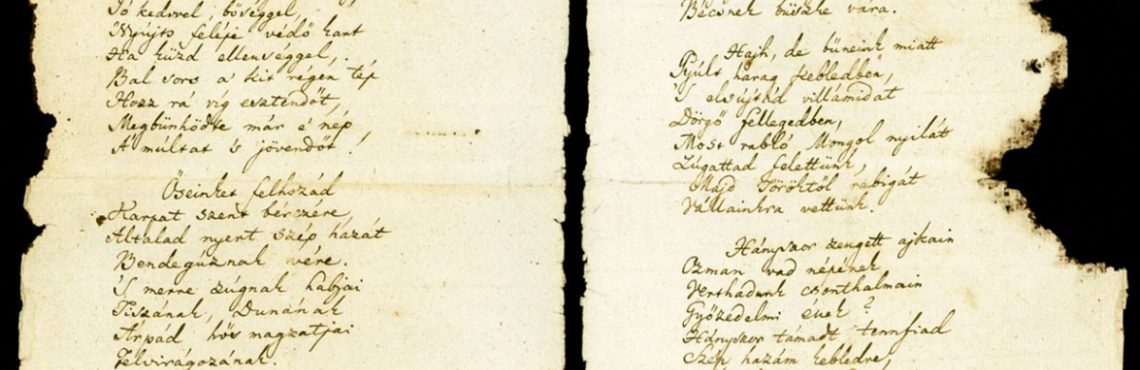 Jó kedvvel, bőséggel,
Nyújts feléje védő kart
Ha küzd ellenséggel,
Bal sors a' kit régen tép
Hozz rá víg esztendőt,
Megbűnhődte már é nép
A' múltat 's jövendőt!
Őseinket felhozád
Kárpát szent bérczére,
Általad nyert szép hazát
Bendegúznak vére.
'S merre zúgnak habjai
Tiszának, Dunának
Árpád hős magzatjai
Felvirágozának.
Bécsnek büszke vára.
Hajh, de bűneink miatt
Gyúlt harag kebledben,
'S elsújtád villámidat
Dörgő fellegedben,
Most rabló Mongol nyilát
Zúgattad felettünk,
Majd Töröktől rabigát
Vállainkra vettünk.
Hányszor zengett ajkain
Ozman vad népének
Verthadunk csonthalmain
Győzedelmi ének?
Hányszor támadt tennfiad
Szép hazám kebledre,